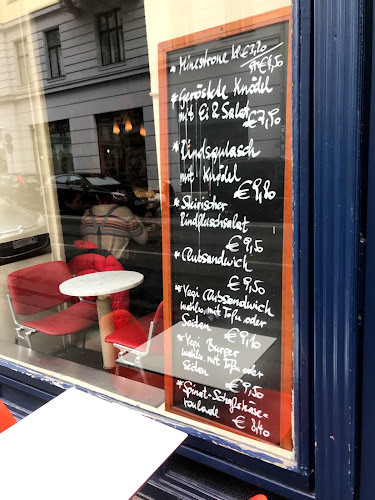 * Minestrone kl €3,20
gr €4,50
* Geröstete Knödel
mit Ei & Salat
€7,90
* Rindsgulasch
mit Knödel
€9,20
* Steirischer
Rindfleischsalat
€9,50
* Clubsandwich
€9,50
* Vegi Clubsandwich
wahlw. mit Tofu oder
Seitan €9,10
* Vegi Burger
wahlw. mit Tofu oder
Seitan
€9,50
* Spinat-Schafskäse=
roulade
€8,40